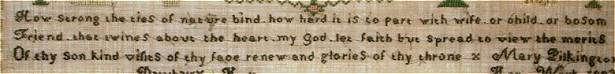 How strong the ties of nature bind how hard it is to part with wife or child or bosom
Friend that twines about the heart my God let faith but spread to view the merits
Of thy Son kind visits of thy face renew and glories of thy throne x Mary Pilkington